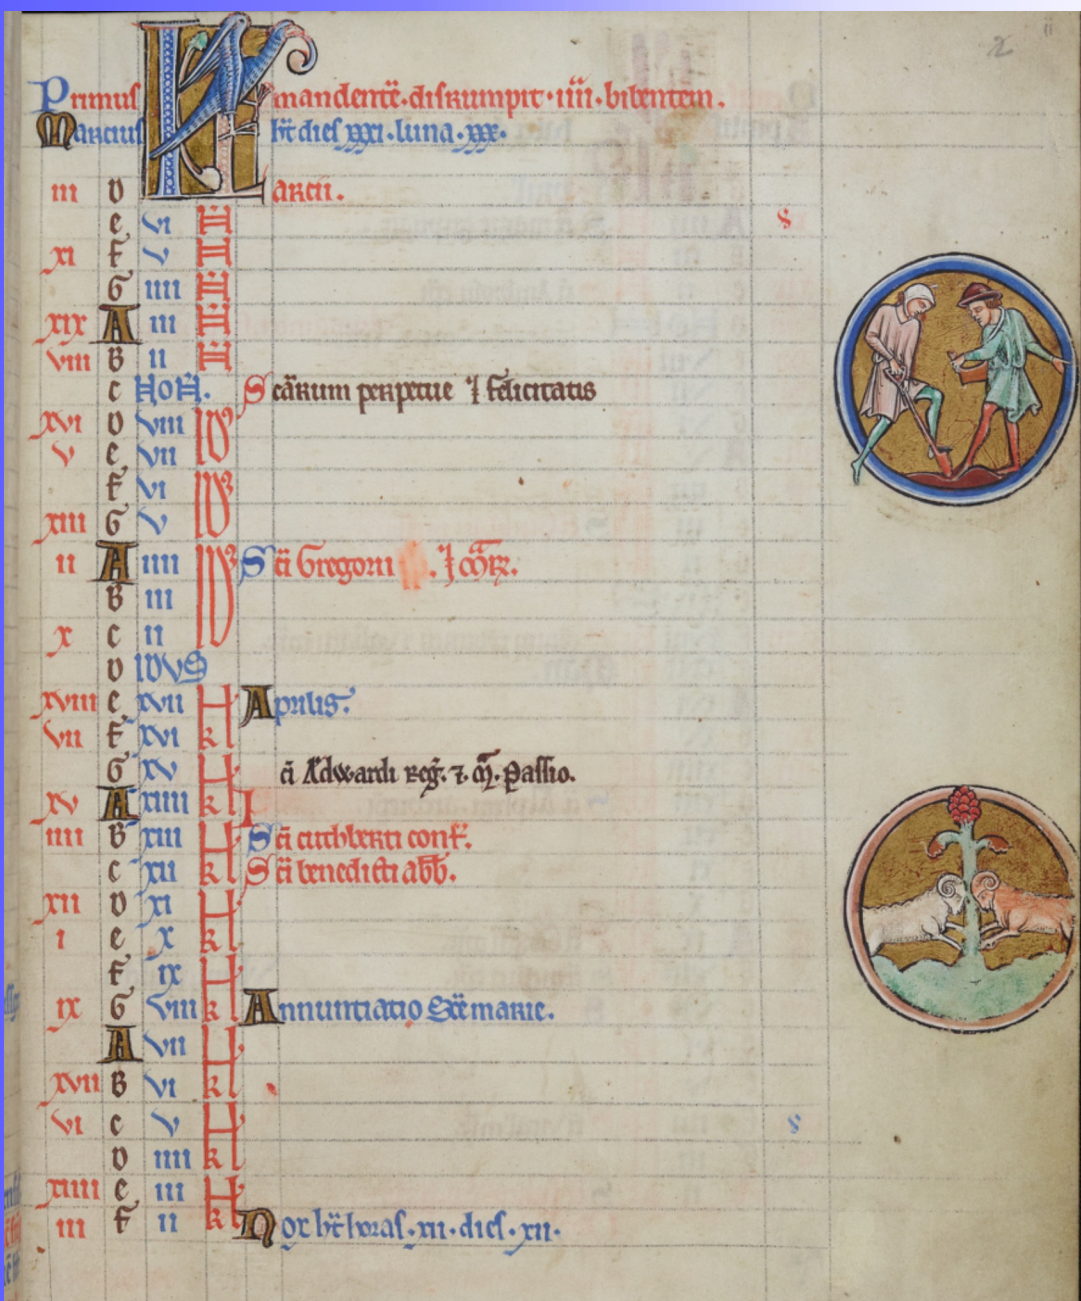 2
ii
Primus mandentē. disrumpit. iiii. bibentem.
Marcius h̄t dies xxxi. luna. xxx.
iii D KL arcii.
e vi N s
xi F v N
G iiii N
xix A iii N
viii B ii N
c NON. Scārum perpetue ⁊ felicitatis
xvi D viii ID
v e vii
F vi ID
xiii G v
ii A iiii ID Sc̄i Gregorii . ⁊
B iii
x c ii
D IDVS
xviii e xvii kl Aprilis.
vii F xvi kl
G xv kl c̄i Ædwardi reḡ. ⁊ m̄. Passio.
xv A xiiii kl
iiii B xiii kl Sc̄i cuthberti conf̄.
c xii kl Sc̄i benedicti abb̄.
xii D xi kl
i e x kl
F ix kl
ix G viii kl Annuntiatio Scē marie.
A vii kl
xvii B vi kl
vi c v kl s
D iiii kl
xiiii e iii kl
iii F ii kl Nox h̄t horas. xii. dies. xii.